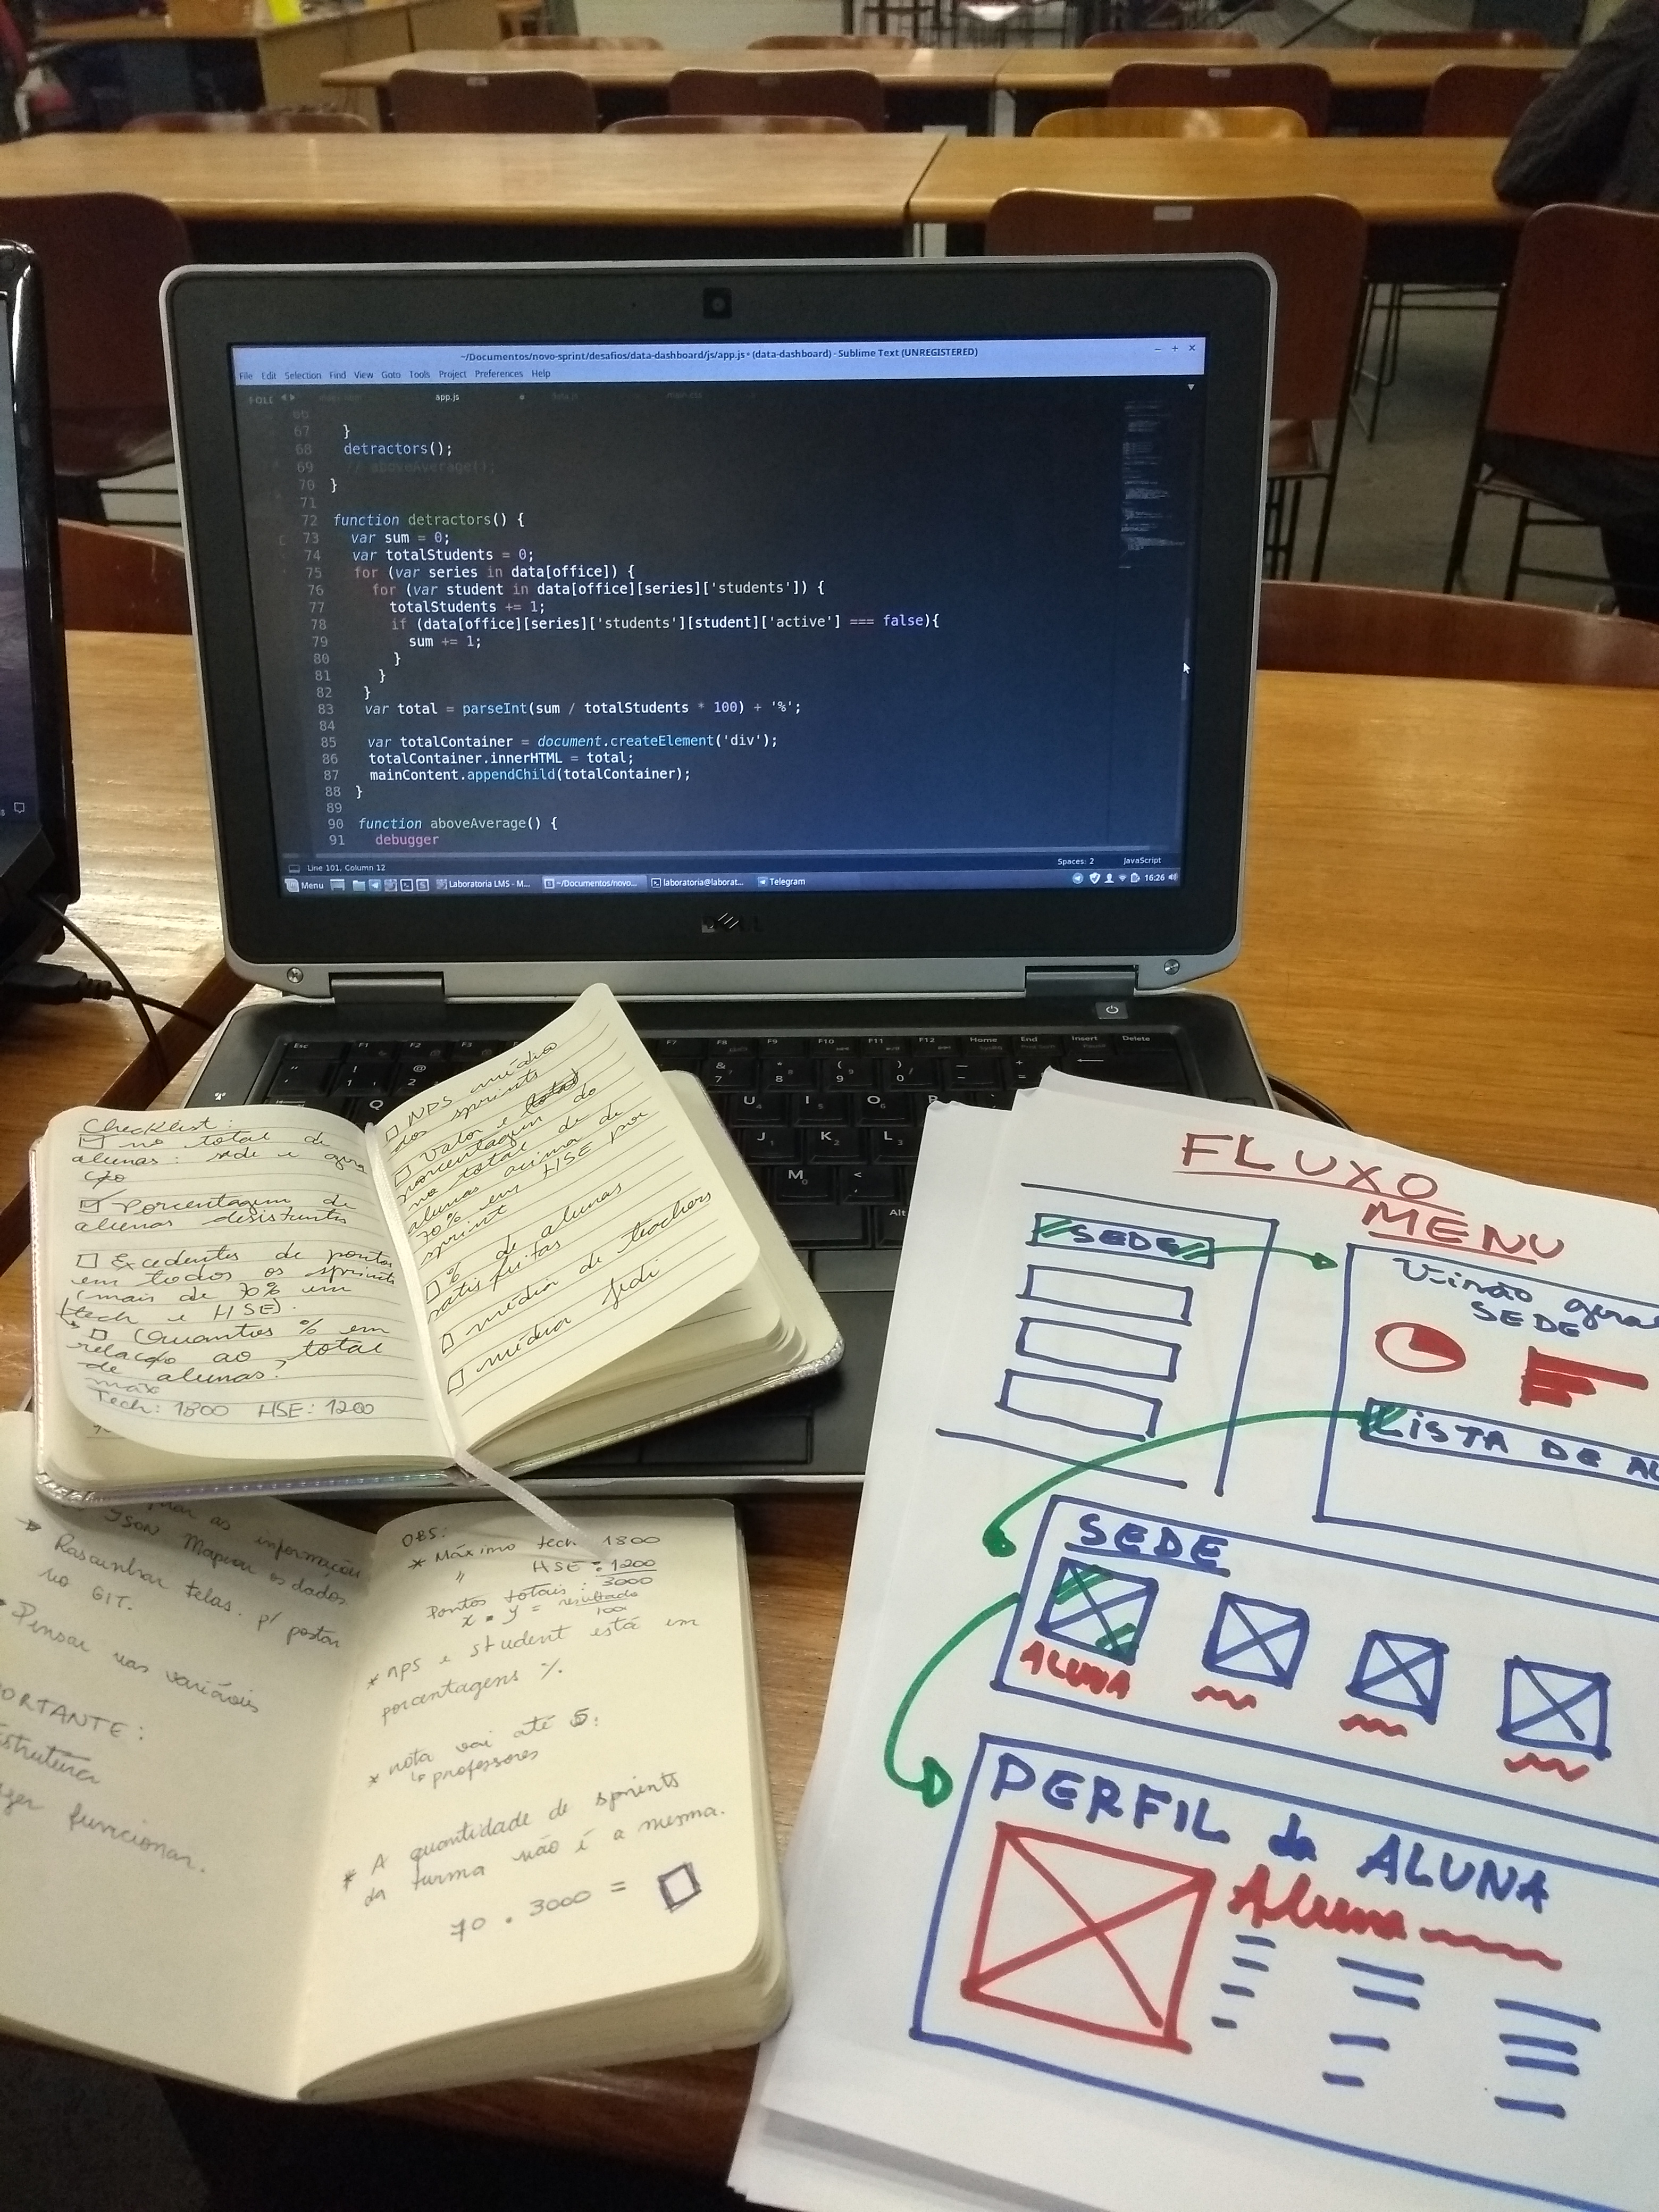 ~/Documentos/novo-sprint/desafios/data-dashboard/js/app.js • (data-dashboard) - Sublime Text (UNREGISTERED)
File Edit Selection Find View Goto Tools Project Preferences Help
app.js
66
67 }
68 detractors();
69 // aboveAverage();
70 }
71
72 function detractors() {
73 var sum = 0;
74 var totalStudents = 0;
75 for (var series in data[office]) {
76 for (var student in data[office][series]['students']) {
77 totalStudents += 1;
78 if (data[office][series]['students'][student]['active'] === false){
79 sum += 1;
80 }
81 }
82 }
83 var total = parseInt(sum / totalStudents * 100) + '%';
84
85 var totalContainer = document.createElement('div');
86 totalContainer.innerHTML = total;
87 mainContent.appendChild(totalContainer);
88 }
89
90 function aboveAverage() {
91 debugger
Line 101, Column 12 Spaces: 2 JavaScript
Menu Laboratoria LMS - M... ~/Documentos/novo... laboratoria@laborat... Telegram 16:26
DELL
Esc F1 F2 F3 F7 F8 F9 F10 F11 F12 Home End Insert Delete
Checklist:
no total de
alunas: sede e gera
ção
Porcentagem de
alunas desistentes
Excedentes de pontos
em todos os sprints
(mais de 70% em
tech e HSE).
(Quantos % em
relação ao total
de alunas?
máx
Tech: 1800 HSE: 1200
NPS médio
dos sprints
Valor e total
porcentagem do
no total de
alunas acima de
70% em HSE por
sprint
% de alunas
satisfeitas
média de teachers
média jedi
as informações
JSON Mapear os dados
Rascunhar telas. p/ postar
no GIT.
Pensar nas variáveis
ORTANTE:
strutura
funcionar.
OBS:
* Máximo tech 1800
" HSE: 1200
3000
Pontos totais:
x . y = resultado
100
* nps e student está em
porcentagens %.
* nota vai até 5:
professores
* A quantidade de sprints
da turma não é a mesma.
70 . 3000 =
FLUXO
MENU
SEDE
Visão geral
SEDE
LISTA DE AL
SEDE
ALUNA
PERFIL da ALUNA
Aluna